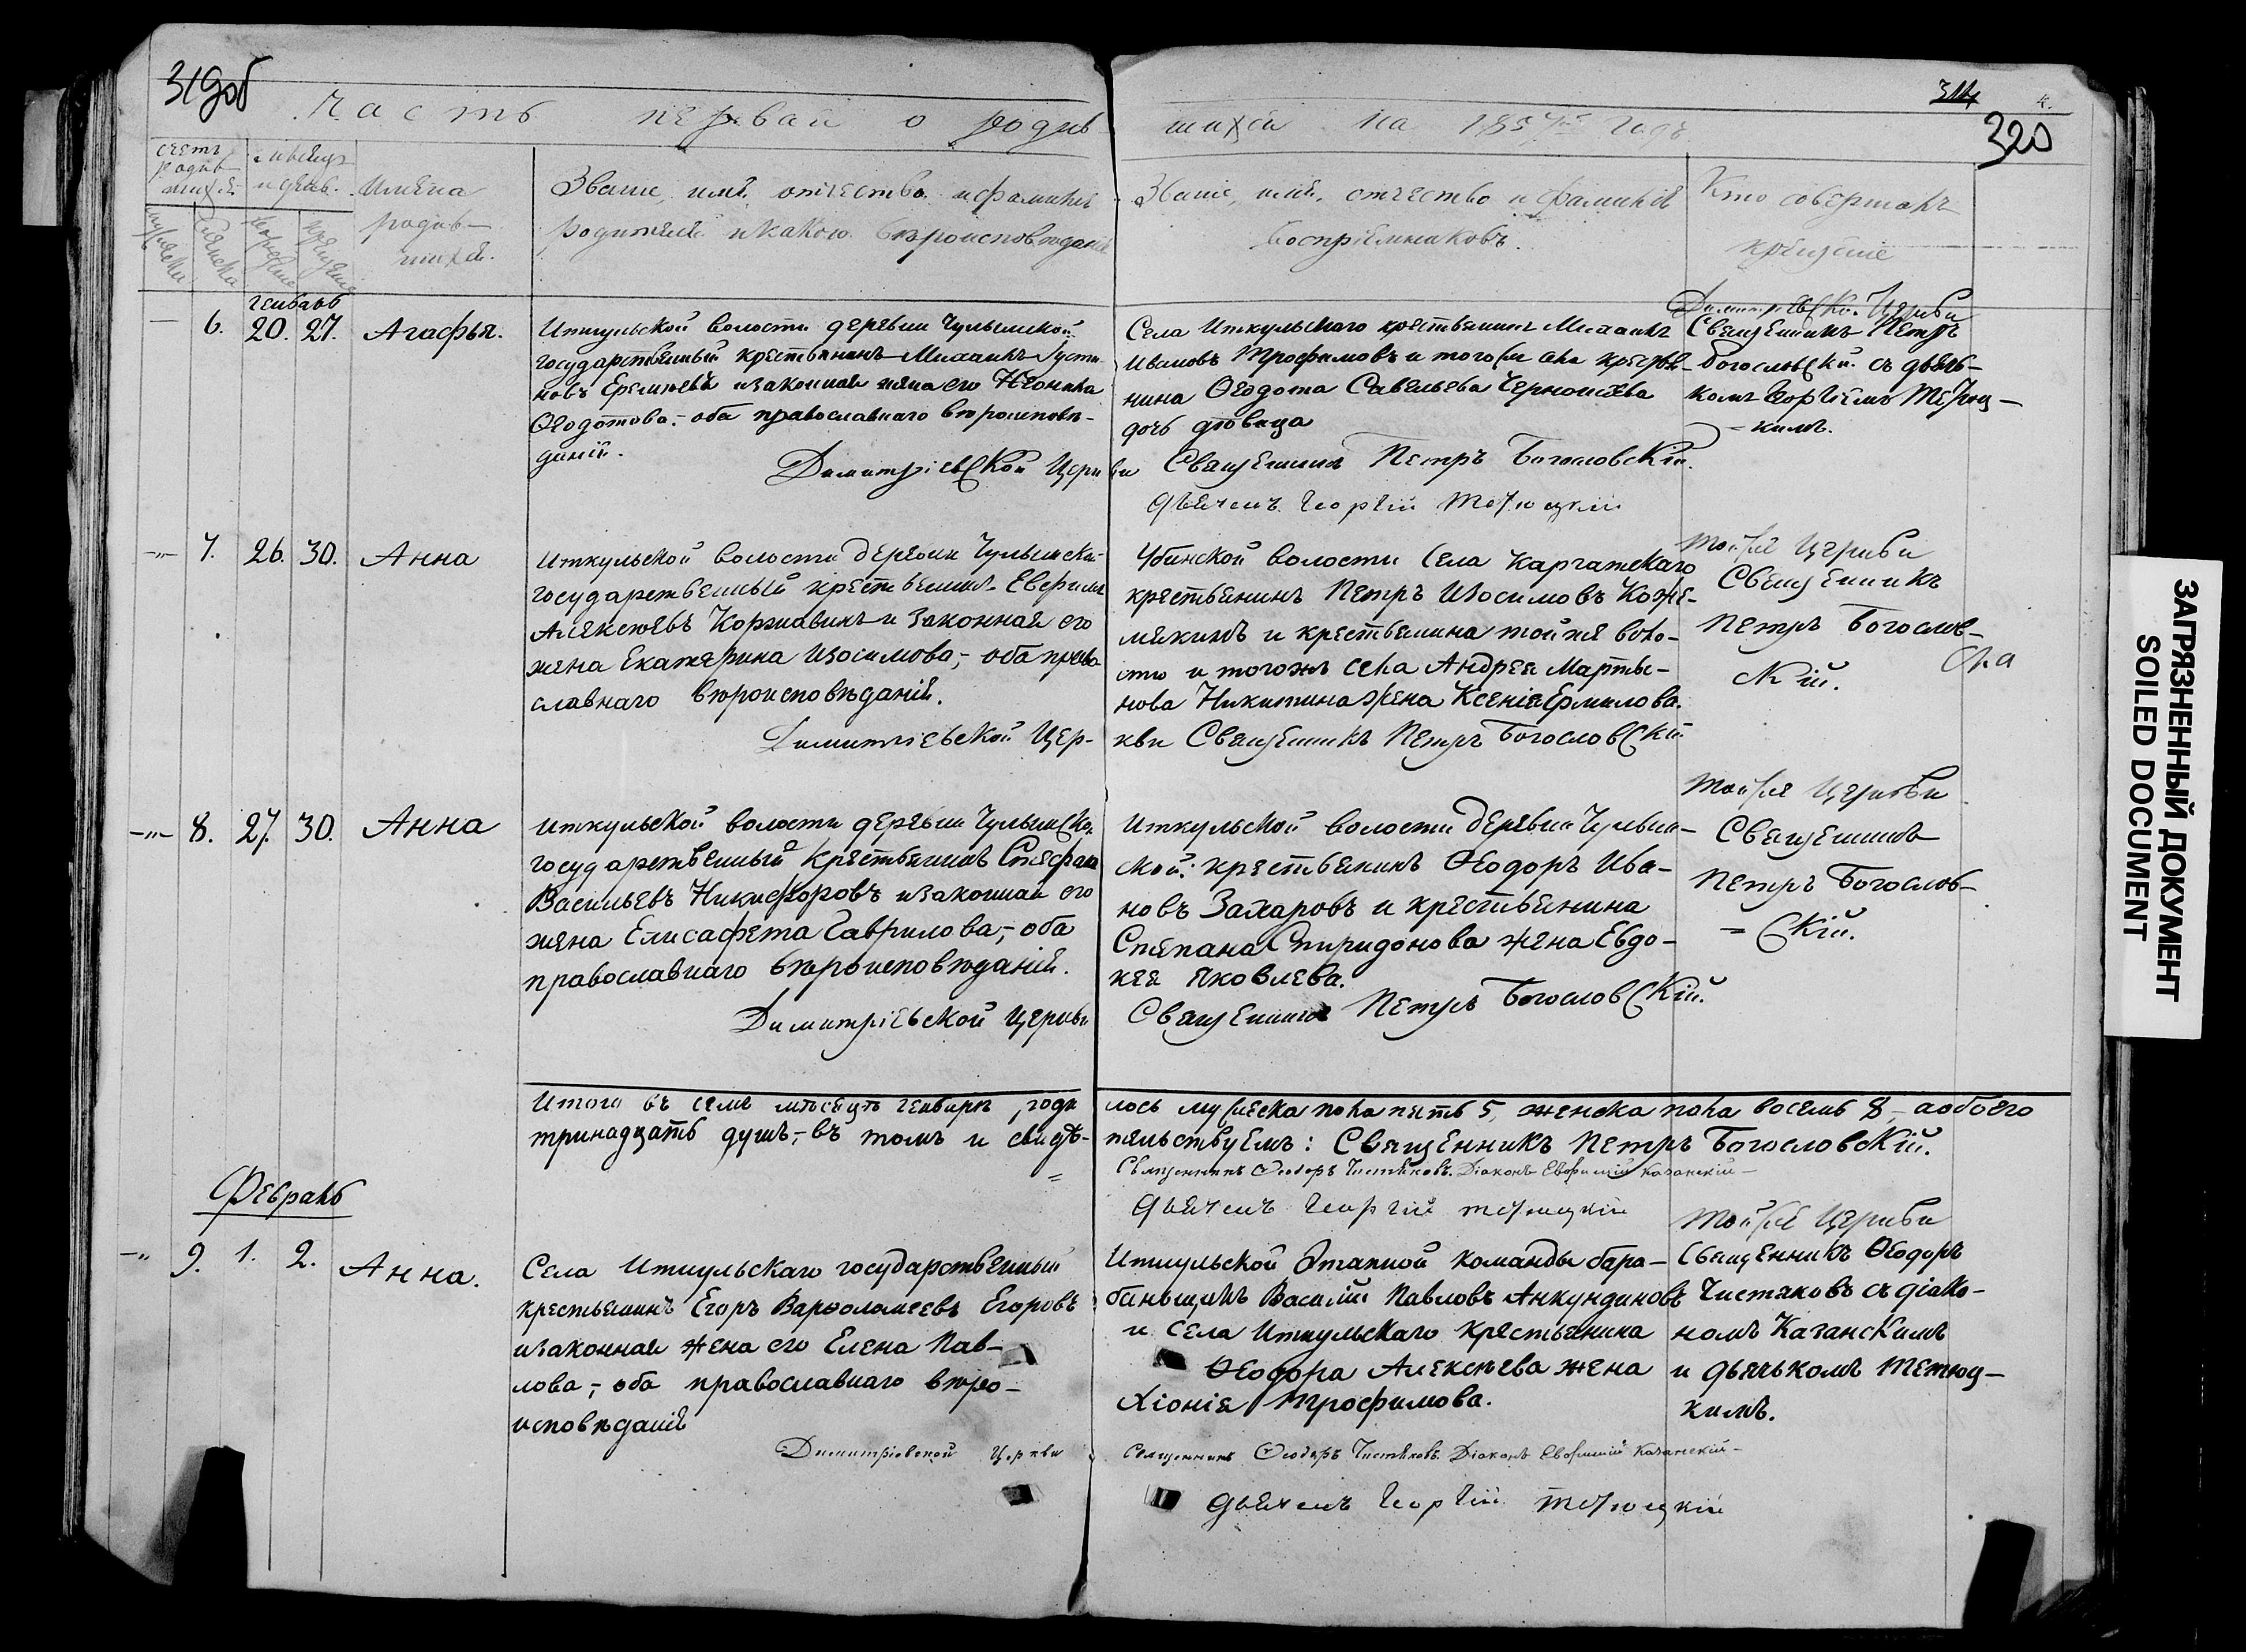 319об
314
4.
320
Часть первая о родив-
шихся на 1857й годъ
счетъ родив-шихся
мѣсяцъ и день.
Имена родив-шихся.
Званіе, имя, отчество и фамилія
родителей и какого вѣроисповѣданія
Званіе, имя, отчество и фамилія
воспріемниковъ.
Кто совершалъ
крещеніе
мужеска
женска
рожденіе
крещеніе
Генварь
— 6. 20. 27. Агафья.
Иткульской волости деревни Чулымской
государственный крестьянинъ Михаилъ Густи-
новъ Еремѣевъ и законная жена его Неонила
Ѳеодотова:- оба православнаго вѣроисповѣ-
данія.
Димитріевской Церк
Села Иткульскаго крестьянинъ Михаилъ
Ивановъ Трофимовъ и тогоже села крестья-
нина Ѳеодота Савельева Черноисева
дочь дѣвица
ви Священникъ Петръ Богословскій.
Дьячекъ Георгій Тетюцкій
Димитріевской Церкви
Священникъ Петръ
Богословскій съ дьяч-
комъ Георгіемъ Тетюц-
-кимъ.
-„- 7. 26. 30. Анна
Иткульской волости деревни Чулымской
государственный крестьянинъ Евфимъ
Алексѣевъ Коржавинъ и законная его
жена Екатерина Изосимова,- оба право
славнаго вѣроисповѣданія.
Димитріевской Цер-
Убинской волости Села Каргатскаго
крестьянинъ Петръ Изосимовъ Коже-
мякинъ и крестьянина тойже воло-
сти и тогожъ села Андрея Марты-
нова Никитина жена Ксенія Ермилова.
кви Священникъ Петръ Богословскій
Тойже Церкви
Священникъ
Петръ Богослов-
скій.
-„- 8. 27. 30. Анна
Иткульской волости деревни Чулымской
государственный крестьянинъ Стефанъ
Васильевъ Никифоровъ и законная его
жена Елисафета Гаврилова,- оба
православнаго вѣроисповѣданія.
Димитріевской Церкви
Иткульской волости деревни Чулым-
ской: крестьянинъ Ѳеодоръ Ива-
новъ Захаровъ и крестьянина
Степана Спиридонова жена Евдо-
кея Яковлева.
Священникъ Петръ Богословскій.
Тойже Церкви
Священникъ
Петръ Богослов-
= скій.
Итого въ семъ мѣсяцѣ генварѣ, роди
лось мужеска пола пять 5, женска пола восемь 8,- а обоего
тринадцать душъ,- въ томъ и свидѣ-
тельствуемъ: Священникъ Петръ Богословскій.
Священникъ Ѳеодоръ Чистяковъ. Діаконъ Евфимій Казанскій-
Дьячекъ Георгій Тетюцкій
Февраль
-„ 9. 1. 2. Анна.
Села Иткульскаго государственный
крестьянинъ Егоръ Варѳоломеевъ Егоровъ
и законная жена его Елена Пав-
лова,- оба православнаго вѣро-
исповѣданія
Димитріевской Церкви
Иткульской Этапной команды бара-
банщикъ Василій Павловъ Анкундиновъ
и села Иткульскаго крестьянина
Ѳеодора Алексѣева жена
Хіонія Трофимова.
Священникъ Ѳеодоръ Чистяковъ. Діаконъ Евфимій Казанскій-
Дьячекъ Георгій Тетюцкій
Тойже Церкви
Священникъ Ѳеодоръ
Чистяковъ съ діако-
номъ Казанскимъ
и дьячькомъ Тетюц-
кимъ.
ЗАГРЯЗНЕННЫЙ ДОКУМЕНТ
SOILED DOCUMENT